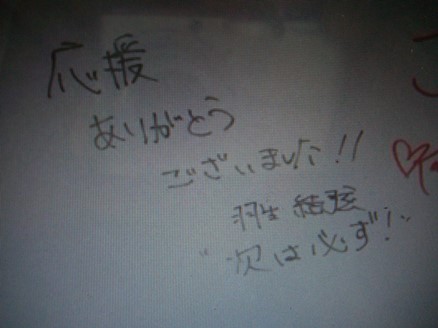 応援
ありがとう
ございました!!
羽生結弦
"次は必ず!"